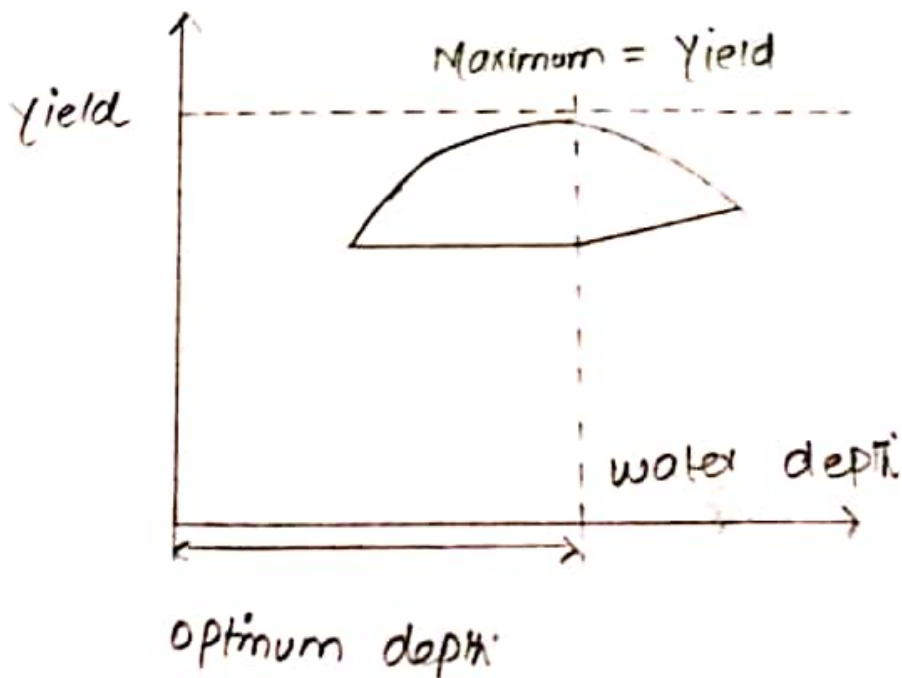 Maximum = Yield
Yield
water depth
optimum depth